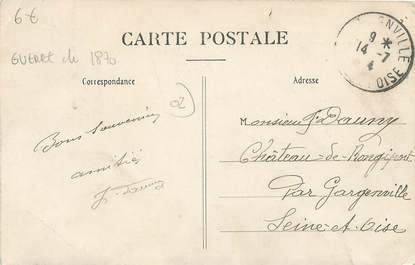 6€
GUERRE de 1870
CARTE POSTALE
Correspondance
Adresse
9 *
14 -7
4
OISE
02
Bons Souvenirs
amitiés
Monsieur Dauny
Château-de-Rangiport
Par Gargenville
Seine-et-Oise